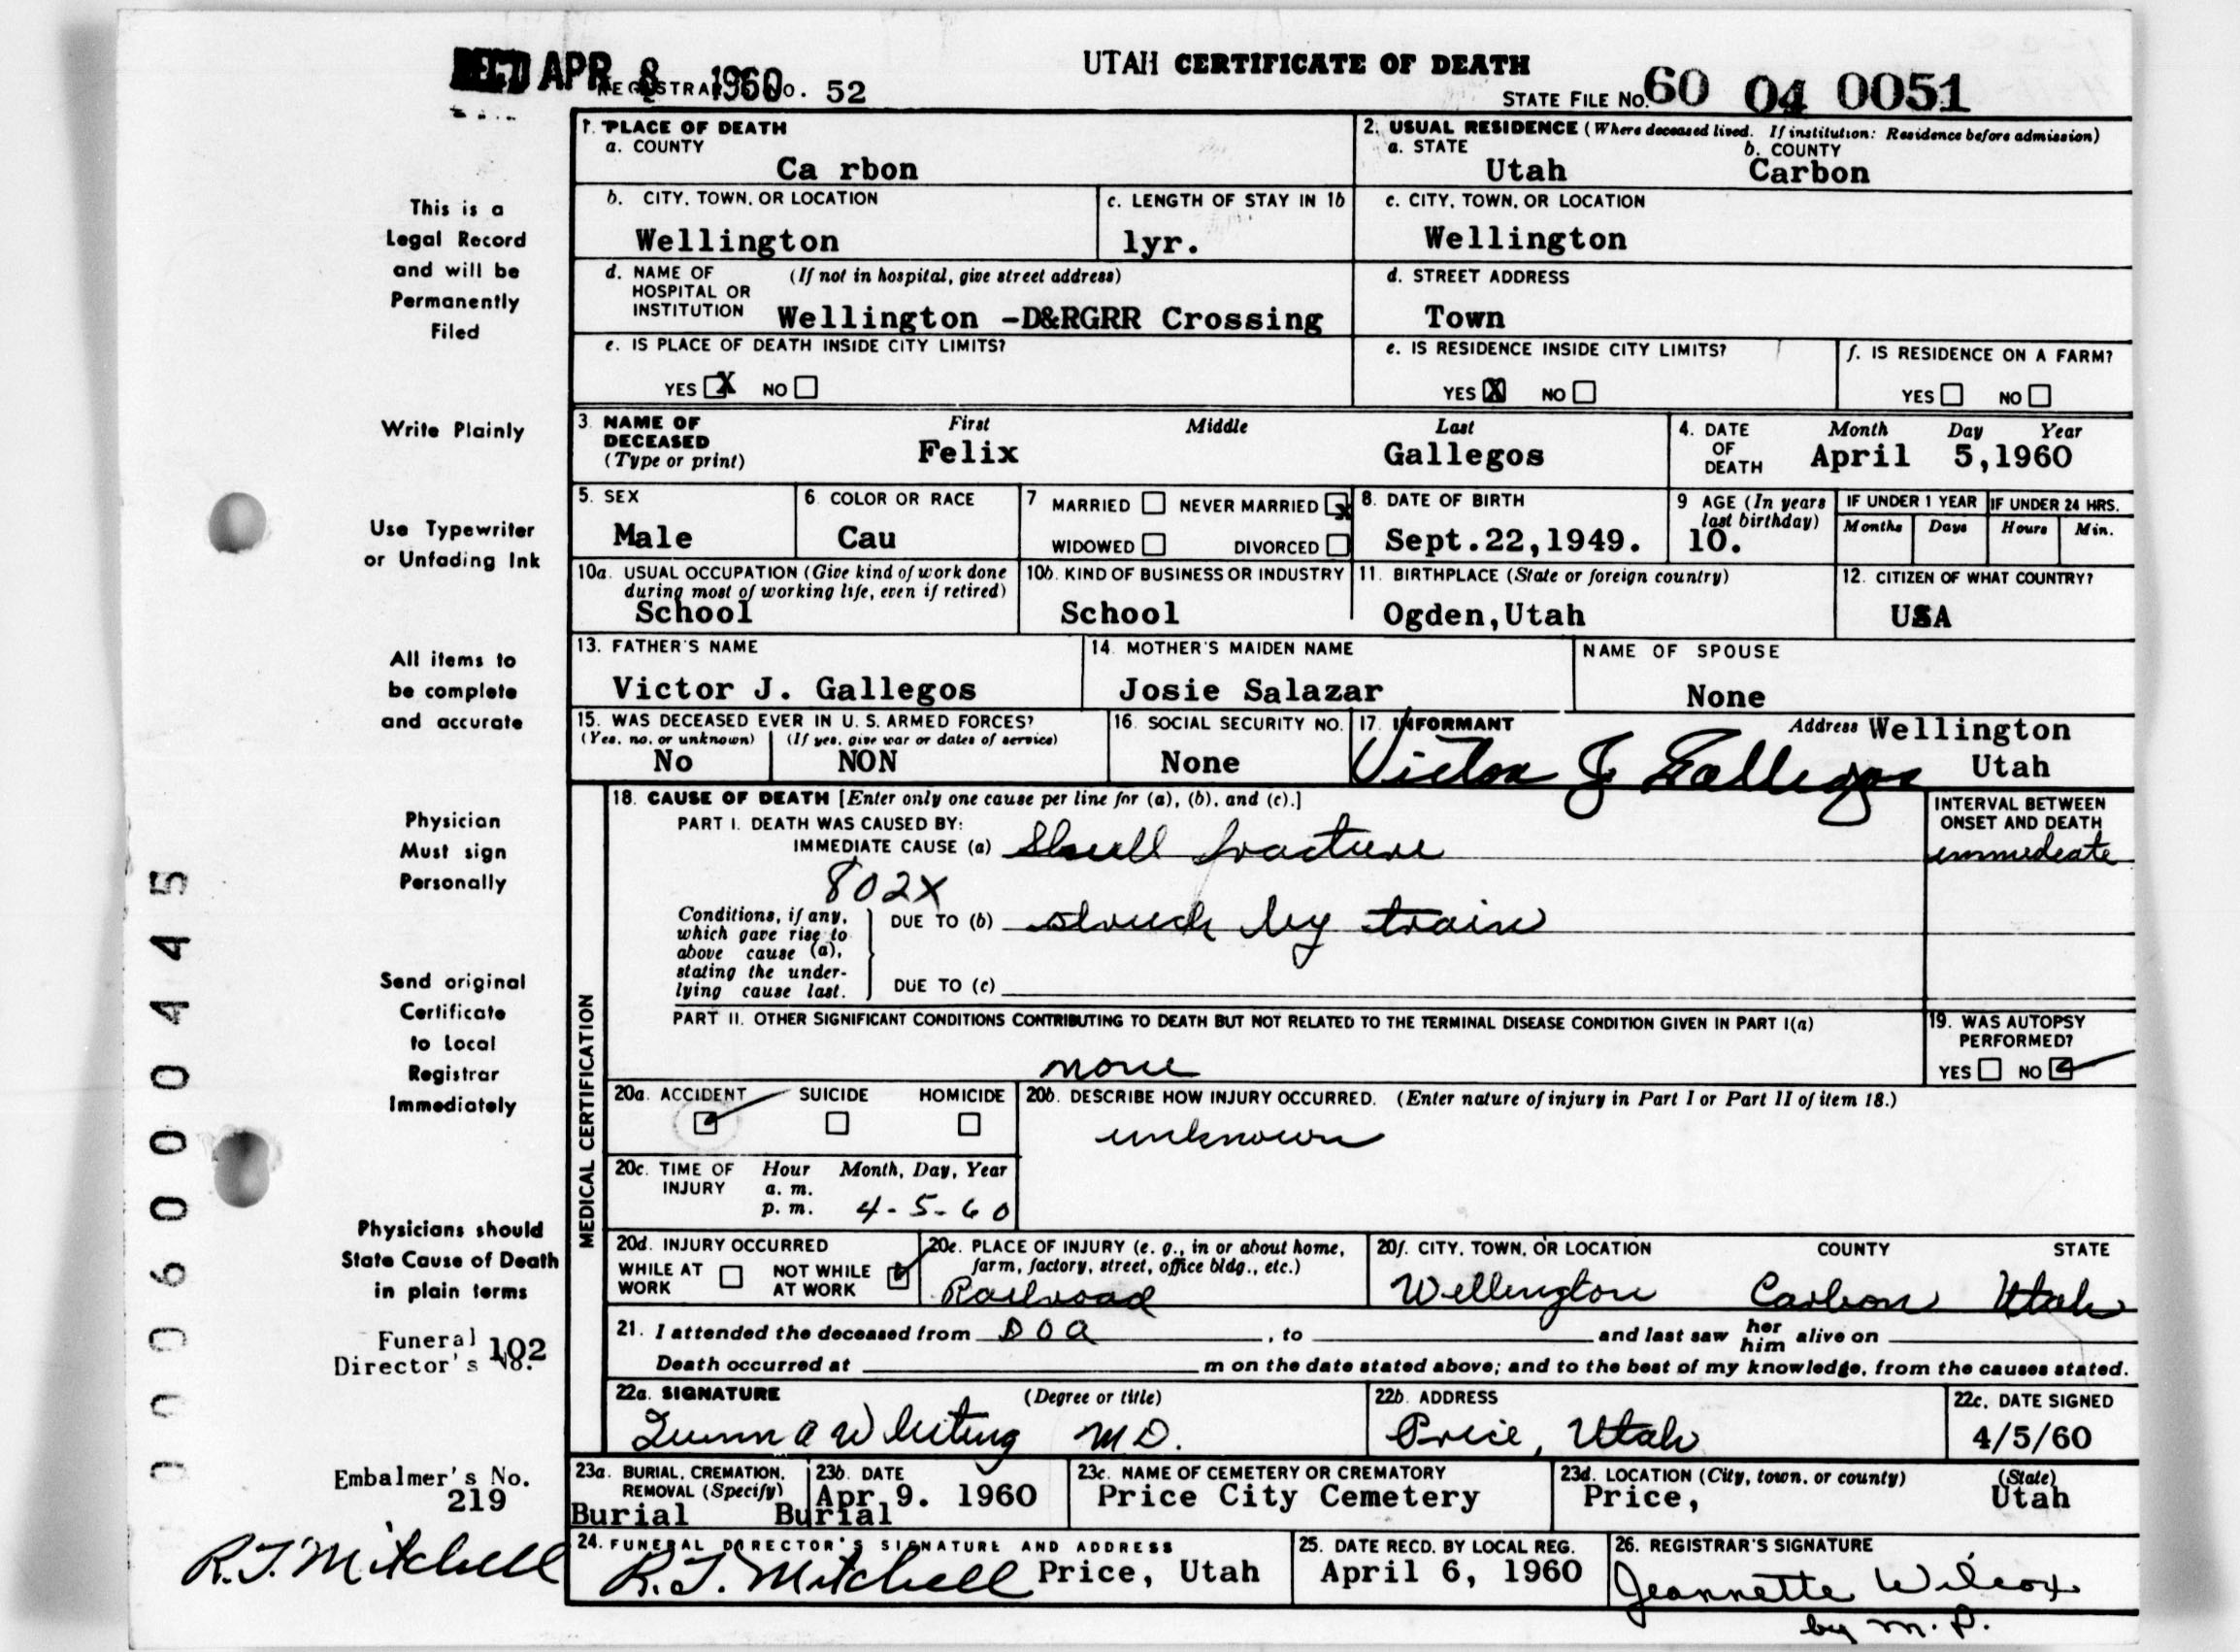 REC'D APR 8 1960
REGISTRAR'S NO. 52
UTAH CERTIFICATE OF DEATH
STATE FILE NO. 60 04 0051
This is a
Legal Record
and will be
Permanently
Filed
Write Plainly
Use Typewriter
or Unfading Ink
All items to
be complete
and accurate
Physician
Must sign
Personally
Send original
Certificate
to Local
Registrar
Immediately
Physicians should
State Cause of Death
in plain terms
Funeral
Director's No. 102
Embalmer's No.
219
R.J. Mitchell
0096000445
1. PLACE OF DEATH
a. COUNTY
Ca rbon
2. USUAL RESIDENCE (Where deceased lived. If institution: Residence before admission)
a. STATE b. COUNTY
Utah Carbon
b. CITY, TOWN, OR LOCATION
Wellington
c. LENGTH OF STAY IN 1b
1yr.
c. CITY, TOWN, OR LOCATION
Wellington
d. NAME OF (If not in hospital, give street address)
HOSPITAL OR
INSTITUTION Wellington -D&RGRR Crossing
d. STREET ADDRESS
Town
e. IS PLACE OF DEATH INSIDE CITY LIMITS?
YES X NO
e. IS RESIDENCE INSIDE CITY LIMITS?
YES X NO
f. IS RESIDENCE ON A FARM?
YES NO
3. NAME OF First Middle Last
DECEASED
(Type or print) Felix Gallegos
4. DATE Month Day Year
OF
DEATH April 5,1960
5. SEX
Male
6. COLOR OR RACE
Cau
7 MARRIED NEVER MARRIED X
WIDOWED DIVORCED
8. DATE OF BIRTH
Sept.22,1949.
9 AGE (In years
last birthday)
10.
IF UNDER 1 YEAR IF UNDER 24 HRS.
Months Days Hours Min.
10a. USUAL OCCUPATION (Give kind of work done
during most of working life, even if retired)
School
10b. KIND OF BUSINESS OR INDUSTRY
School
11. BIRTHPLACE (State or foreign country)
Ogden,Utah
12. CITIZEN OF WHAT COUNTRY?
USA
13. FATHER'S NAME
Victor J. Gallegos
14. MOTHER'S MAIDEN NAME
Josie Salazar
NAME OF SPOUSE
None
15. WAS DECEASED EVER IN U. S. ARMED FORCES?
(Yes, no, or unknown) (If yes, give war or dates of service)
No NON
16. SOCIAL SECURITY NO.
None
17. INFORMANT Address Wellington
Victor J Gallegos Utah
MEDICAL CERTIFICATION
18. CAUSE OF DEATH [Enter only one cause per line for (a), (b), and (c).]
PART I. DEATH WAS CAUSED BY:
IMMEDIATE CAUSE (a) Skull fracture
802X
Conditions, if any,
which gave rise to
above cause (a),
stating the under-
lying cause last.
DUE TO (b) struck by train
DUE TO (c)
INTERVAL BETWEEN
ONSET AND DEATH
immediate
PART II. OTHER SIGNIFICANT CONDITIONS CONTRIBUTING TO DEATH BUT NOT RELATED TO THE TERMINAL DISEASE CONDITION GIVEN IN PART I(a)
none
19. WAS AUTOPSY
PERFORMED?
YES NO
20a. ACCIDENT SUICIDE HOMICIDE
20b. DESCRIBE HOW INJURY OCCURRED. (Enter nature of injury in Part I or Part II of item 18.)
unknown
20c. TIME OF Hour Month, Day, Year
INJURY a. m.
p. m. 4-5-60
20d. INJURY OCCURRED
WHILE AT NOT WHILE
WORK AT WORK
20e. PLACE OF INJURY (e. g., in or about home,
farm, factory, street, office bldg., etc.)
Railroad
20f. CITY, TOWN, OR LOCATION COUNTY STATE
Wellington Carbon Utah
21. I attended the deceased from DOA , to and last saw her him alive on
Death occurred at m on the date stated above; and to the best of my knowledge, from the causes stated.
22a. SIGNATURE (Degree or title)
Quinn A Whiting M D.
22b. ADDRESS
Price, Utah
22c. DATE SIGNED
4/5/60
23a. BURIAL, CREMATION,
REMOVAL (Specify)
Burial Burial
23b. DATE
Apr 9. 1960
23c. NAME OF CEMETERY OR CREMATORY
Price City Cemetery
23d. LOCATION (City, town, or county) (State)
Price, Utah
24. FUNERAL DIRECTOR'S SIGNATURE AND ADDRESS
R.J. Mitchell Price, Utah
25. DATE RECD. BY LOCAL REG.
April 6, 1960
26. REGISTRAR'S SIGNATURE
Jeannette Wilcox
by M. P.